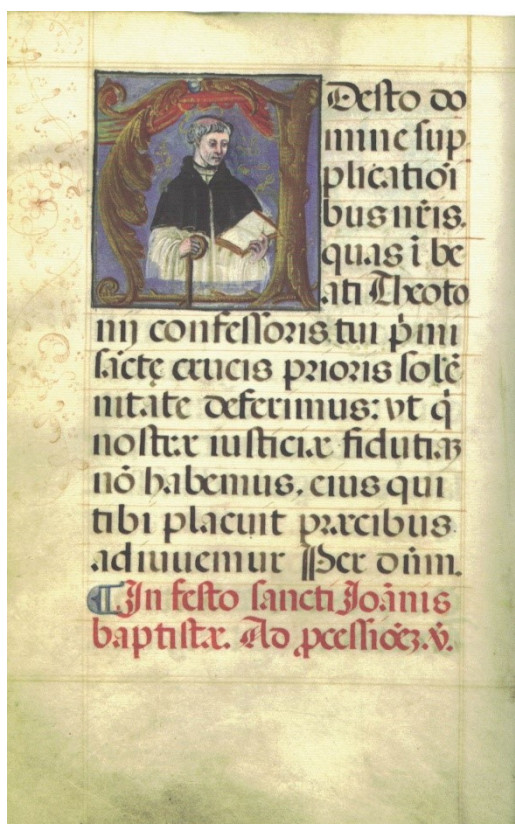 Desto do
mine sup
plicatiōi
bus nr̄is.
quas ī be
ati Theoto
nij confessoris tui p̄mi
sāctę crucis prioris solē
nitate deferimus: vt q̄
nostræ iusticiæ fidutiaꝫ
nō habemus. eius qui
tibi placuit præcibus
adiuuemur Per dn̄m.
¶ In festo sancti Joānis
baptistæ. Ad ꝓcessiōeꝫ. v̄.